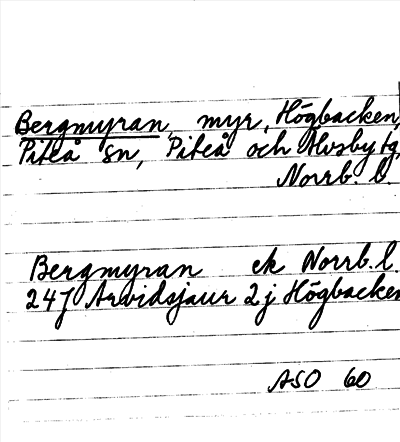 Bergmyran, myr, Högbacken,
Piteå sn, Piteå och Älvsby tg,
Norrb. l.
Bergmyran ek Norrb. l.
24 J Arvidsjaur 2 j Högbacken
ASO 60